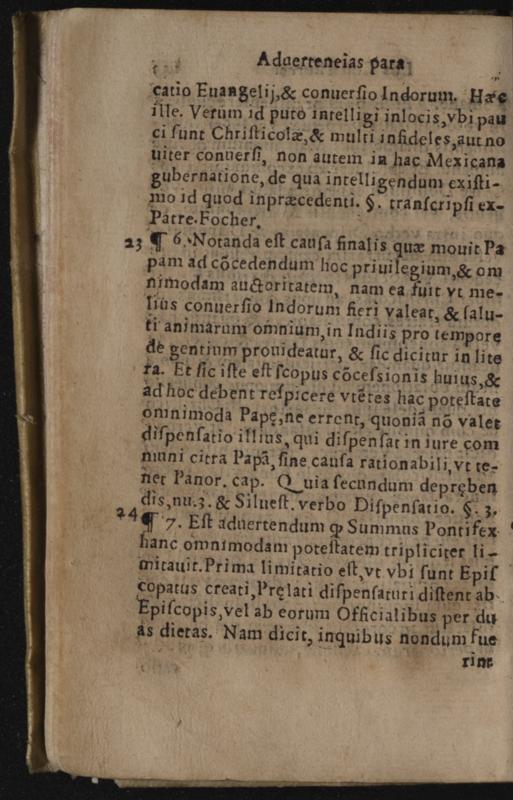 Aduerteneias para
catio Euangelij,& conuersio Indorum. Hæc
ille. Verum id puto intelligi inlocis,vbi pau
ci sunt Christicolæ,& multi infideles,aut no
uiter conuersi, non autem in hac Mexicana
gubernatione, de qua intelligendum existi-
mo id quod inpræcedenti. §. transcripsi ex-
Patre.Focher.
23 ¶ 6. Notanda est causa finalis quæ mouit Pa
pam ad cõcedendum hoc priuilegium,& om
nimodam auctoritatem, nam ea fuit vt me-
lius conuersio Indorum fieri valeat, & salu-
ti animarum omnium, in Indiis pro tempore
de gentium prouideatur, & sic dicitur in lite
ra. Et sic iste est scopus cõcessionis huius,&
ad hoc debent respicere vtẽtes hac potestate
omnimoda Papę,ne errent, quoniã nõ valet
dispensatio illius, qui dispensat in iure com
muni citra Papã, sine causa rationabili, vt te-
net Panor. cap. Quia secundum depręben
dis,nu.3. & Siluest. verbo Dispensatio. §. 3.
24 ¶ 7. Est aduertendum ꝙ Summus Pontifex
hanc omnimodam potestatem tripliciter li-
mitauit. Prima limitatio est,vt vbi sunt Epis
copatus creati, Pręlati dispensaturi distent ab
Episcopis,vel ab eorum Officialibus per du
as dietas. Nam dicit, inquibus nondum fue
rint